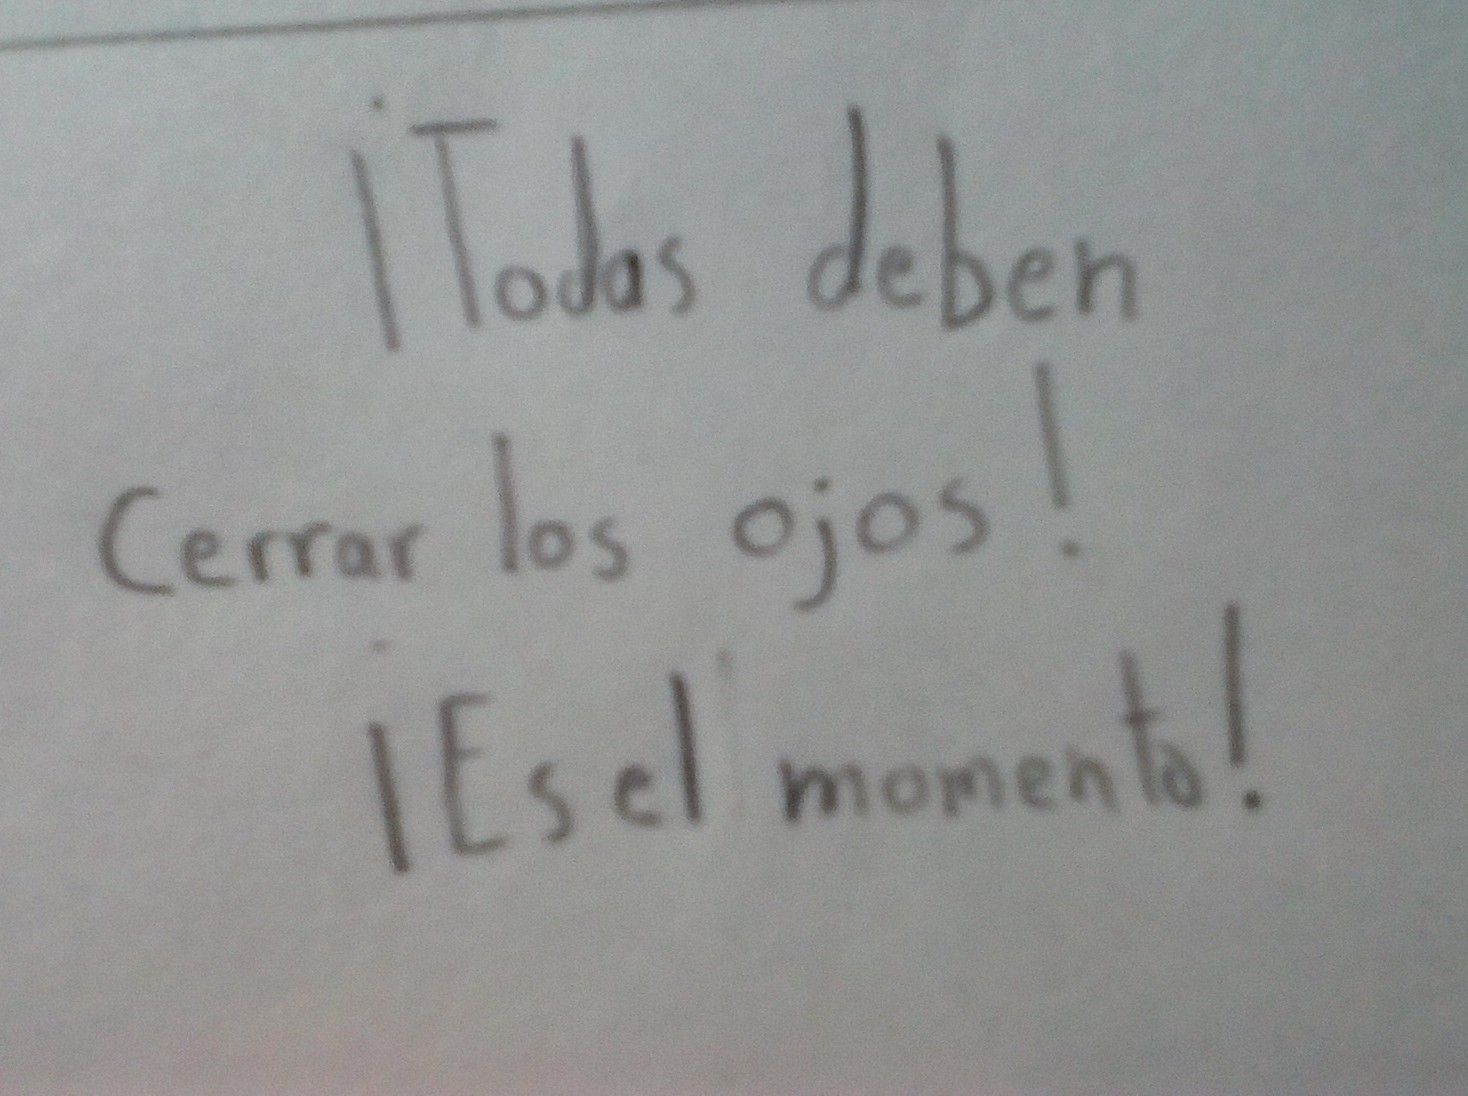 ¡Todas deben
Cerrar los ojos!
¡Es el momento!